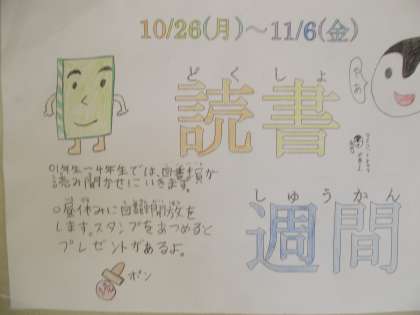 10/26(月)～11/6(金)
どくしょ
読書
やぁ
○1年生～4年生では、図書委員が
読み聞かせにいきます。
しゅうかん
週間
○昼休みに図書館開放を
します。スタンプをあつめると
プレゼントがあるよ。
ポン